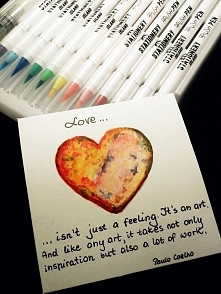 STATIONERY
Love ...
... isn't just a feeling. It's an art.
And like any art, it takes not only
inspiration but also a lot of work.
Paulo Coelho